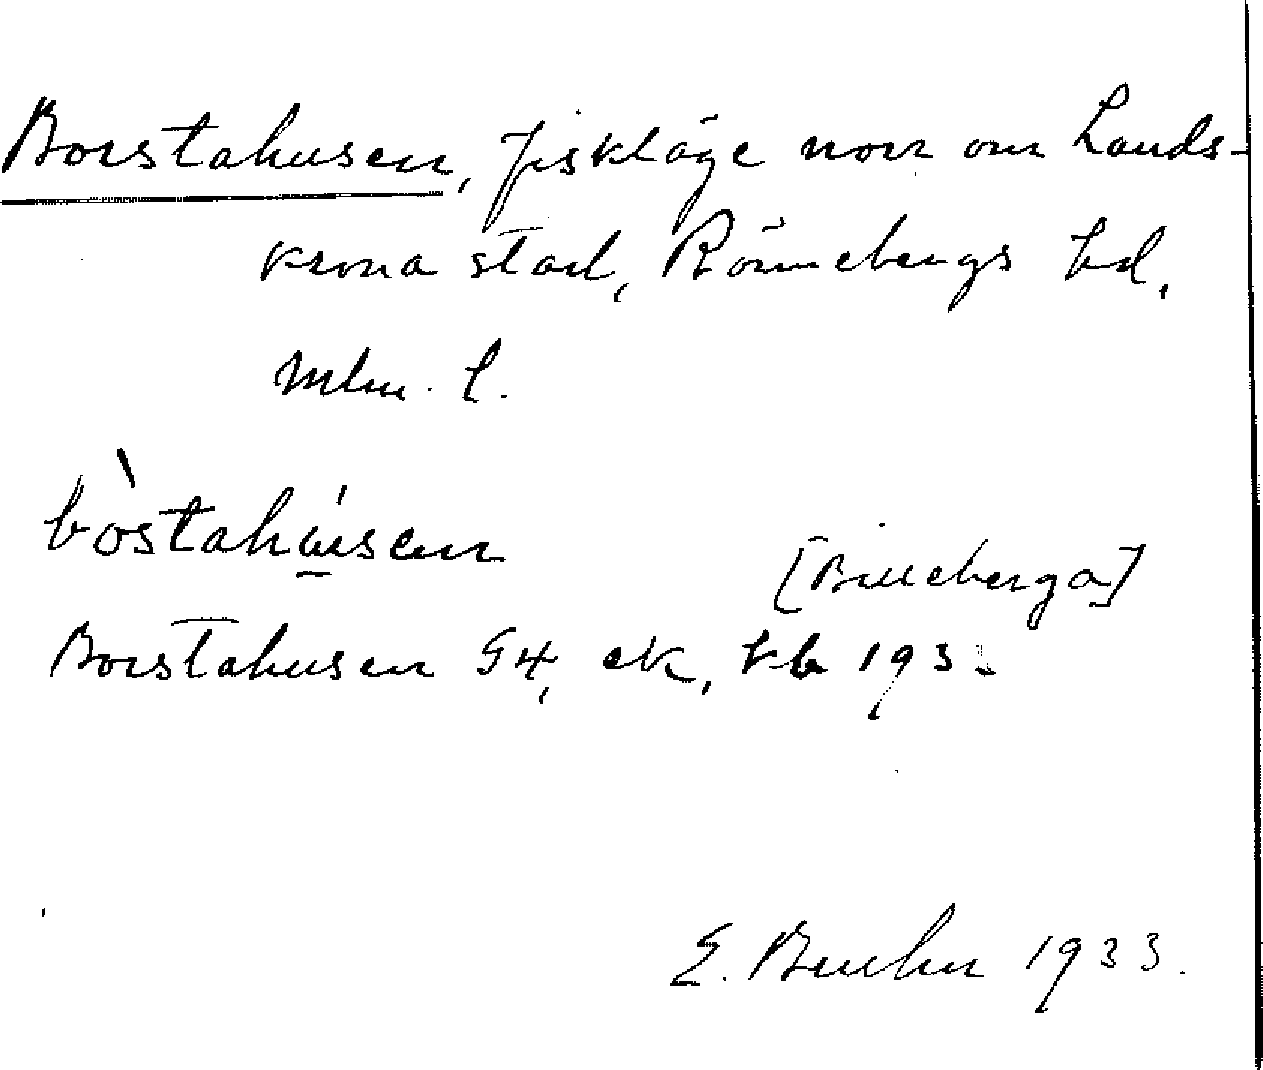 Borstahusen, fiskläge norr om Lands-
krona stad, Rönnebergs hd,
Mlm. l.
bòstahúsen
[Billeberga]
Borstahusen G4, ek, kb 193
E. 1933.